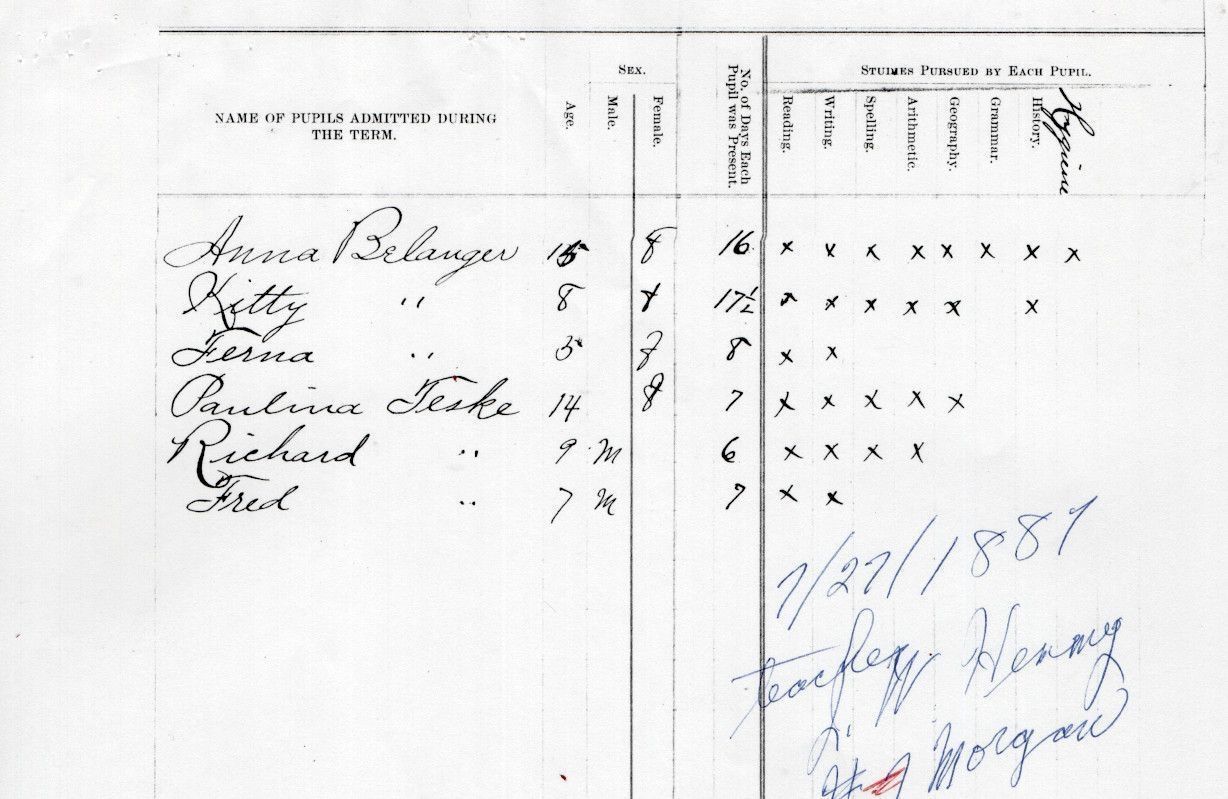 SEX.
STUDIES PURSUED BY EACH PUPIL.
NAME OF PUPILS ADMITTED DURING
THE TERM.
Age.
Male.
Female.
No. of Days Each
Pupil was Present.
Reading.
Writing.
Spelling.
Arithmetic.
Geography.
Grammar.
History.
Hygiene
Anna Belanger 15 F 16 x x x x x x x x
Kitty " 8 F 17½ x x x x x x
Ferna " 5 F 8 x x
Paulina Teske 14 F 7 x x x x x
Richard " 9 M 6 x x x x
Fred " 7 M 7 x x
7/27/1887
teacher Henry
Morgan